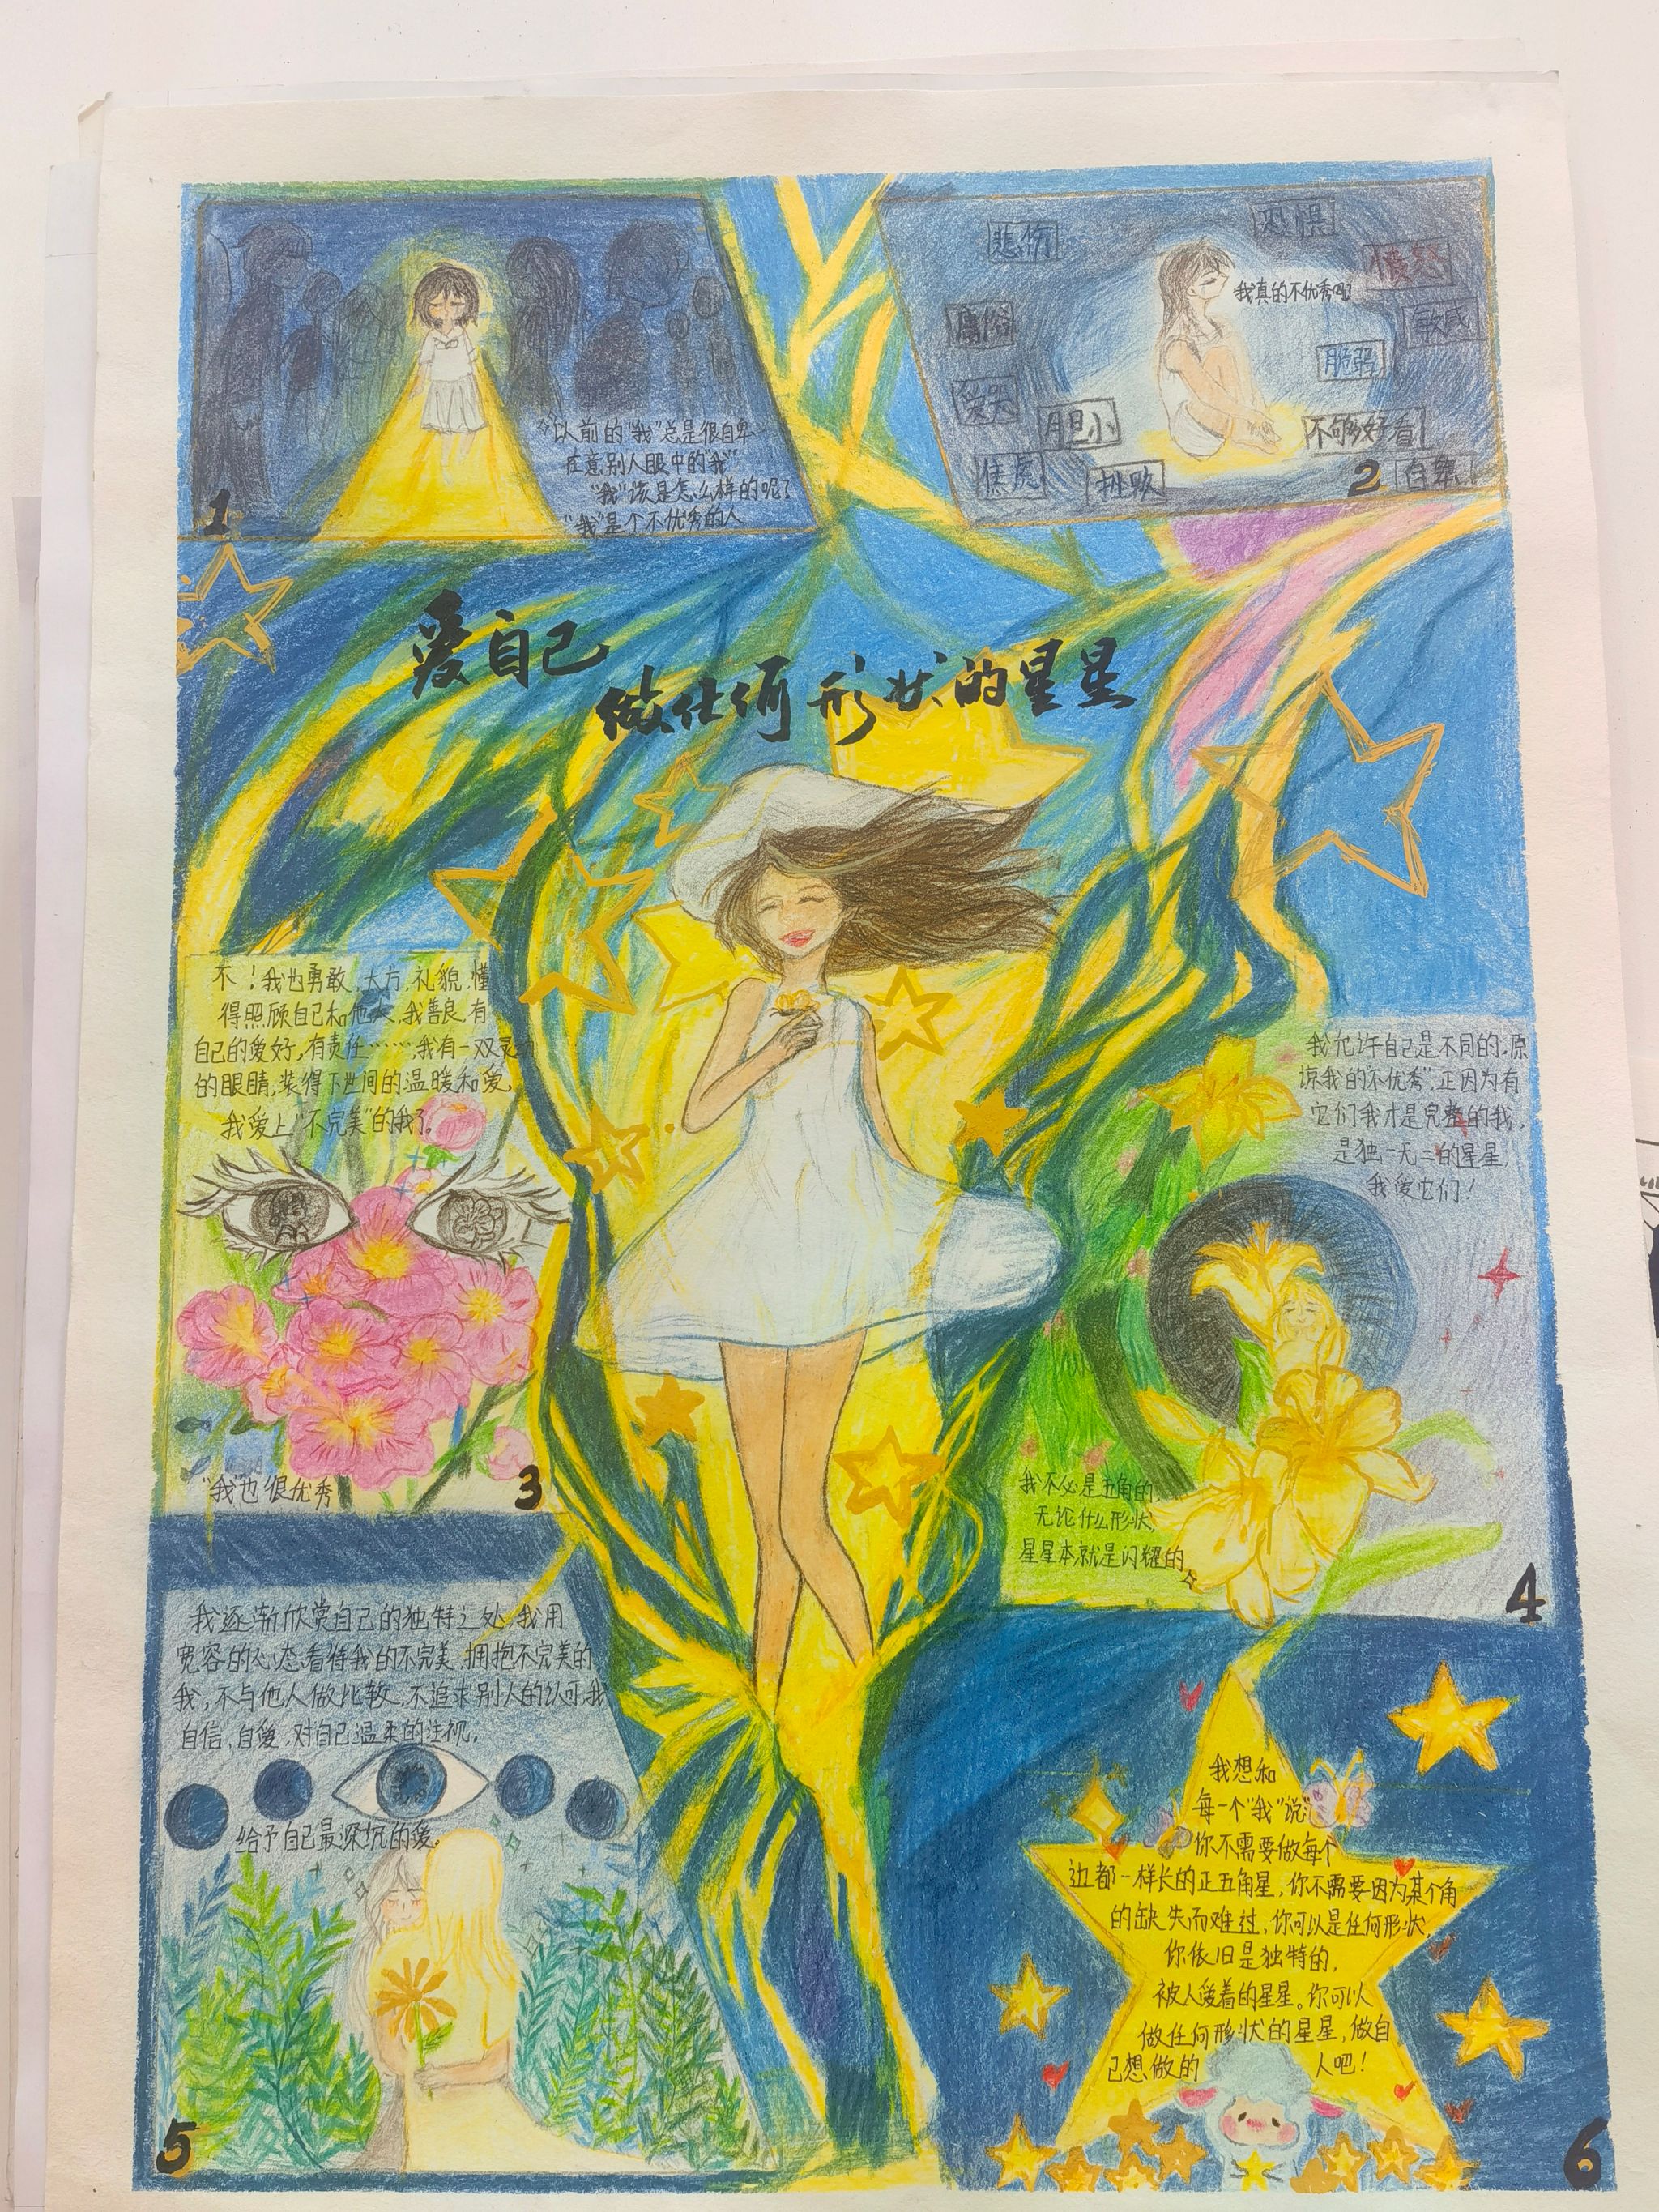 以前的"我"总是很自卑
在意别人眼中的"我"
"我"该是怎么样的呢?
"我"是个不优秀的人
1
悲伤
恐惧
愤怒
我真的不优秀吗?
庸俗
敏感
脆弱
胆小
不够好看
焦虑
挑败
自卑
2
爱自己
做任何形状的星星
不!我也勇敢,大方,礼貌,懂
得照顾自己和他人,我善良,有
自己的爱好,有责任……,我有一双灵动
的眼睛,装得下世间的温暖和爱,
我爱上"不完美"的我了。
"我"也很优秀
3
我允许自己是不同的,原
谅我的"不优秀",正因为有
它们我才是完整的我,
是独一无二的星星,
我爱它们!
我不必是五角的,
无论什么形状,
星星本就是闪耀的。
4
我逐渐欣赏自己的独特之处,我用
宽容的心态看待我的不完美,拥抱不完美的
我,不与他人做比较,不追求别人的认可,我
自信,自爱,对自己温柔的注视。
给予自己最深沉的爱。
5
我想和
每一个"我"说"
你不需要做每个
边都一样长的正五角星,你不需要因为某个角
的缺失而难过,你可以是任何形状,
你依旧是独特的,
被人爱着的星星。你可以
做任何形状的星星,做自
己想做的人吧!
6